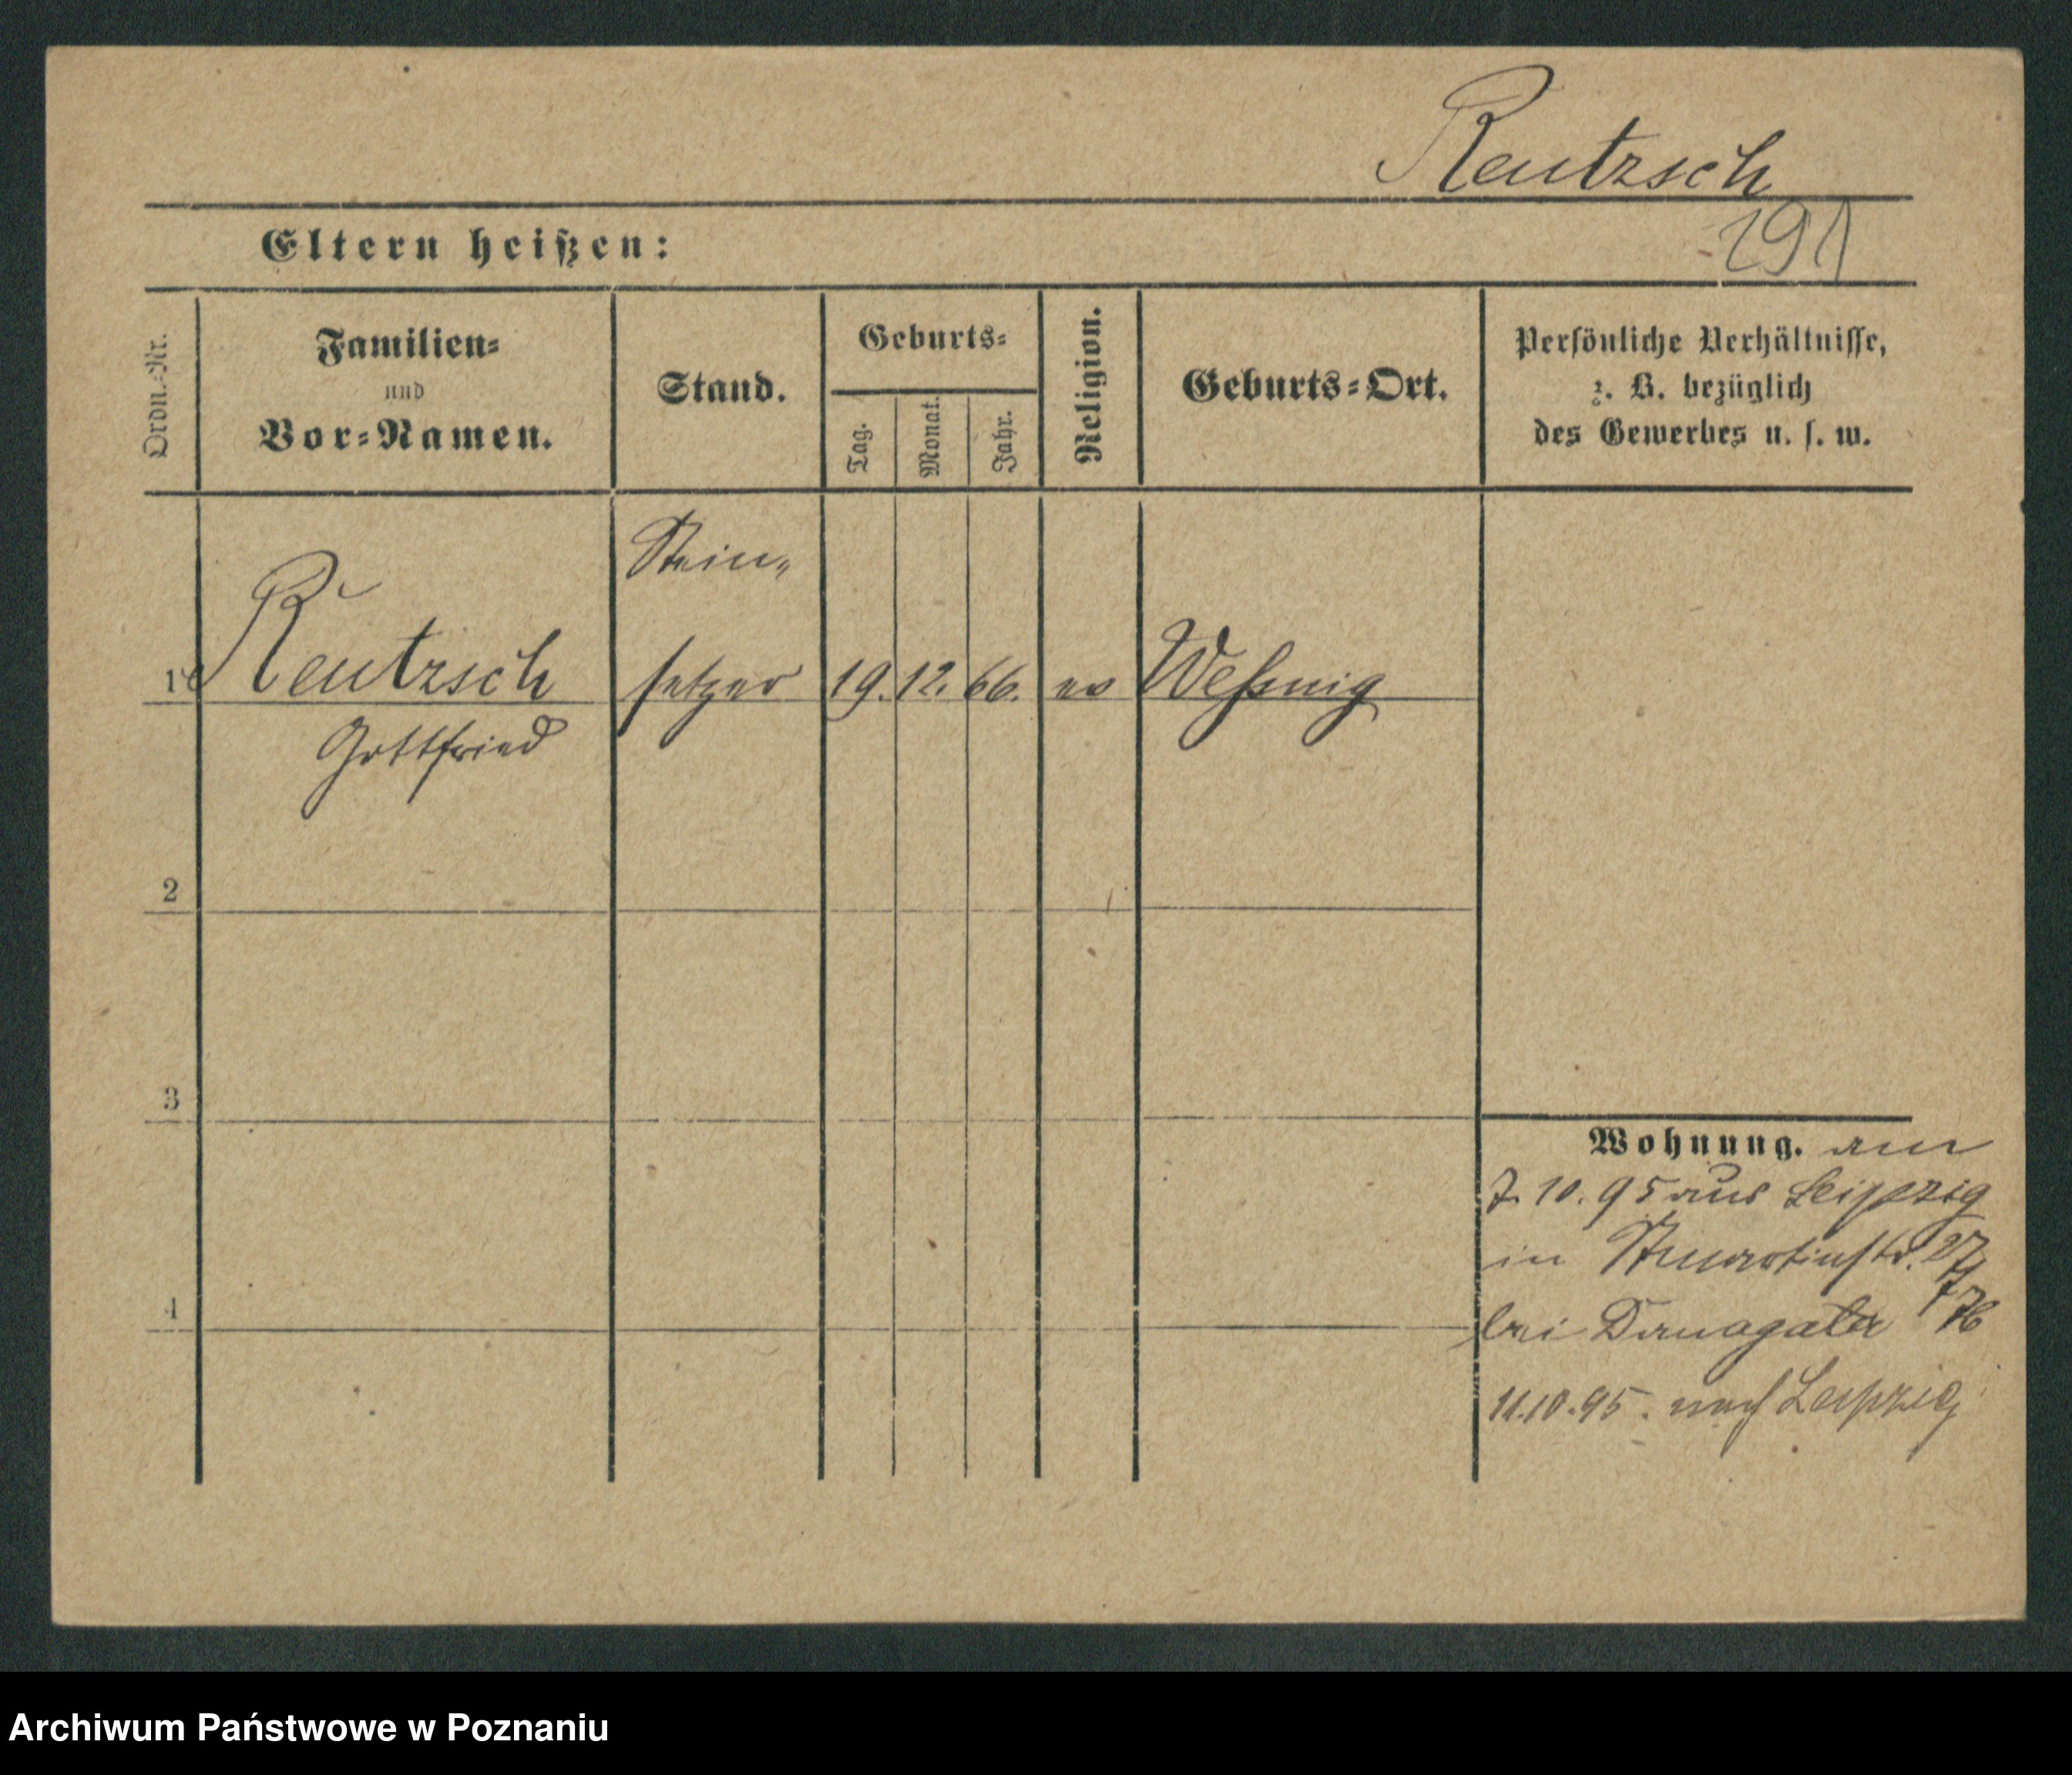 Reutzsch
191
Eltern heißen:
Ordn.-Nr.
Familien-
und
Vor-Namen.
Stand.
Geburts-
Tag.
Monat.
Jahr.
Religion.
Geburts-Ort.
Persönliche Verhältnisse,
z. B. bezüglich
des Gewerbes u. s. w.
Stein-
1 Reutzsch setzer 19. 12. 66. ev Weßnig
Gottfried
2
3
Wohnung. am
7. 10. 95 aus Leipzig
in St martinstr. 27
4
bei Danagala
11.10.95. nach Leipzig
Archiwum Państwowe w Poznaniu